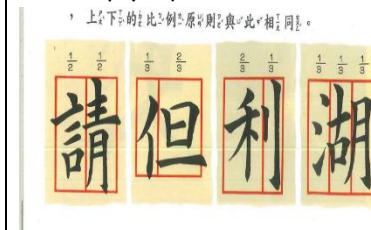 ，上下的比例原則與此相同。
1/2 1/2 1/3 2/3 2/3 1/3 1/3 1/3 1/3
請 但 利 湖